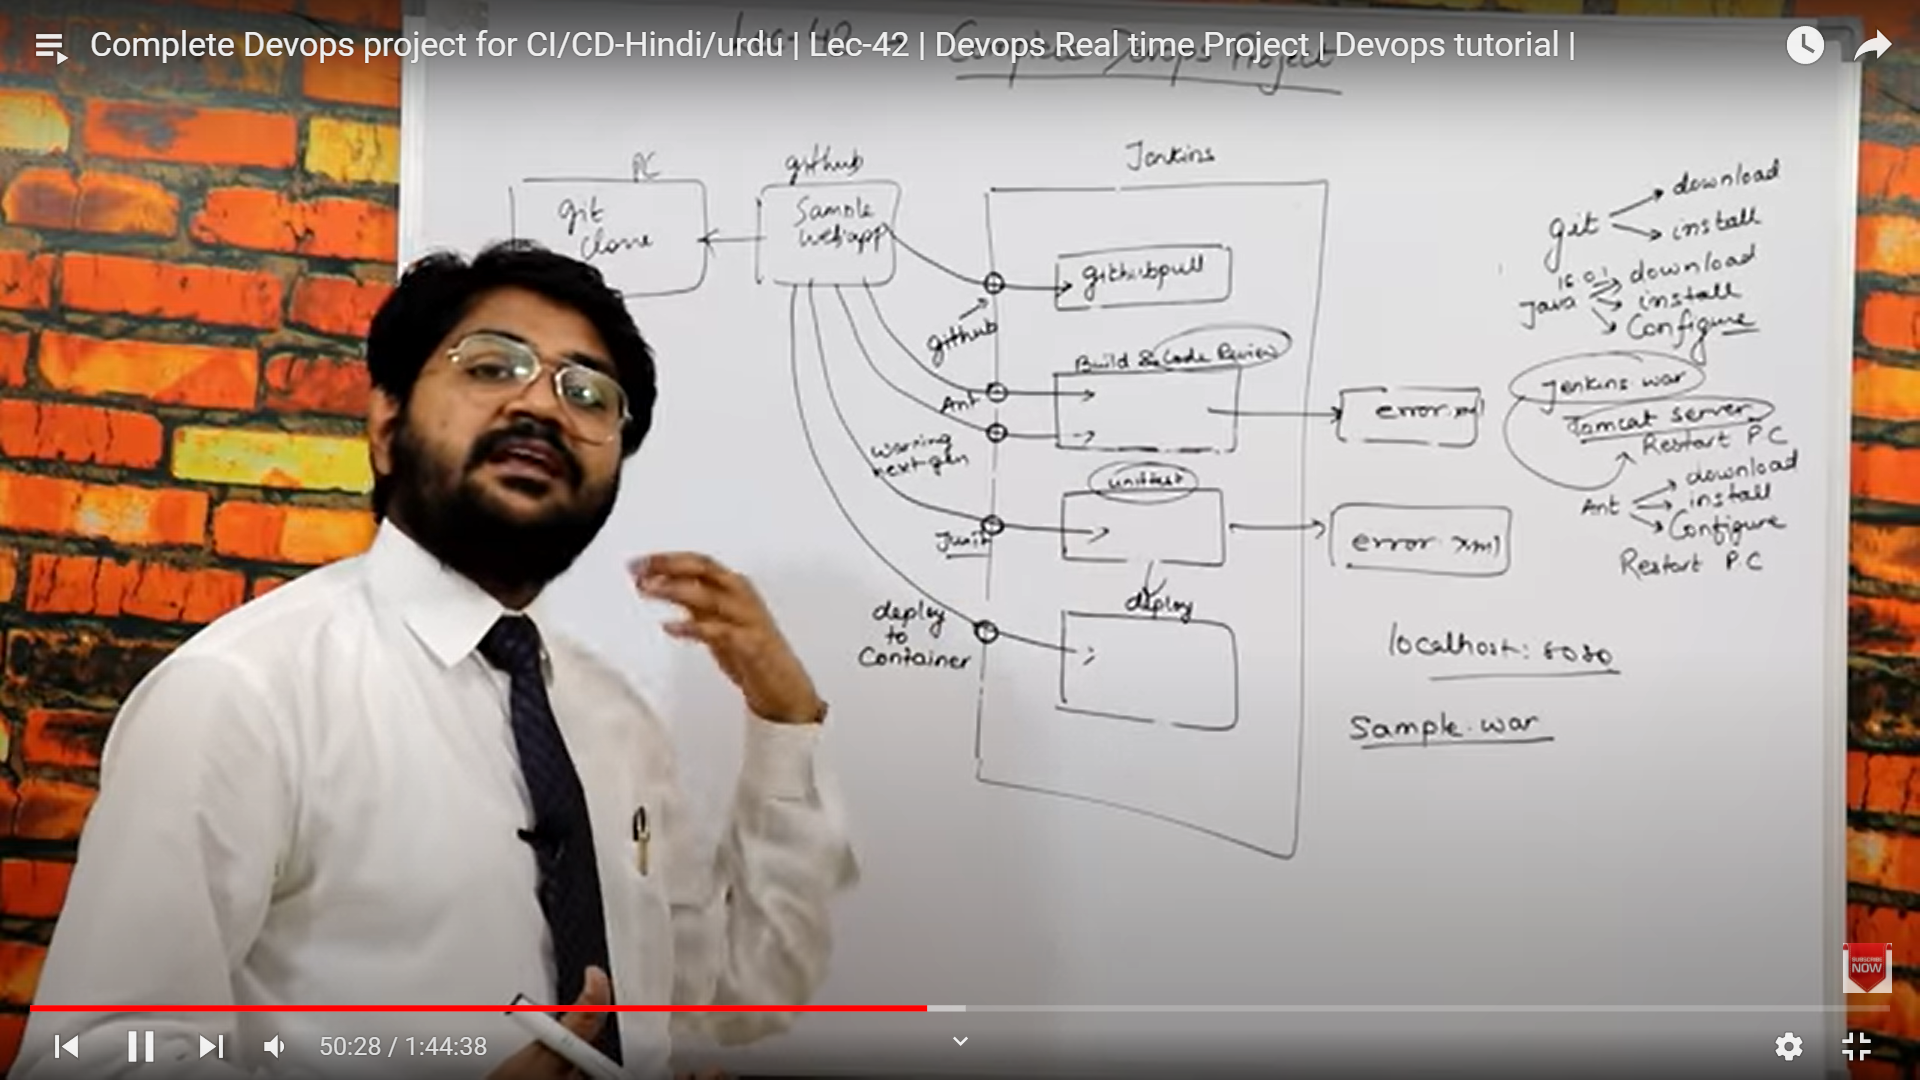 Complete Devops project for CI/CD-Hindi/urdu | Lec-42 | Devops Real time Project | Devops tutorial |
Lec-42
Complete Devops Project
PC
git
clone
github
Sample
webapp
Jenkins
githubpull
github
Build & Code Review
Ant
warning
next-gen
error.xml
unittest
Junit
error.xml
deploy
deploy
to
Container
git
download
install
16.0.1
Java
download
install
Configure
Jenkins.war
Tomcat server
Restart PC
Ant
download
install
Configure
Restart P.C
localhost:8080
Sample.war
SUBSCRIBE
NOW
50:28 / 1:44:38